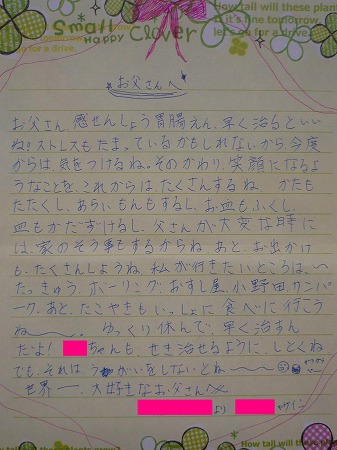 Small
Happy
Clover
How tall will these plants
If it's fine tomorrow,
let's go for a drive.
for a drive.
お父さんへ
お父さん、感せんしょう胃腸えん、早く治るといい
ね!ストレスもたまっているかもしれないから今度
からは、気をつけるね。そのかわり、笑顔になるよ
うなことを、これからは、たくさんするね かたも
たたくし、あらいもんもするし、お皿もふくし、
皿もかたずけるし、父さんが大変な時に
は、家のそう事もするからね あと、お出かけ
も、たくさんしようね、私が行きたいところは、
たっきゅう、ボーリング、おすし屋、小野田サンパ
ーク、あと、たこやきも、いっしょに食べに行こう
ね 。ゆっくり休んで、早く治すん
だよ! ちゃんも、せき治せるように、しとくね
でも、それは うがいをしないとね
世界一、大好きなお父さんへ
より
サイン
How tall will these